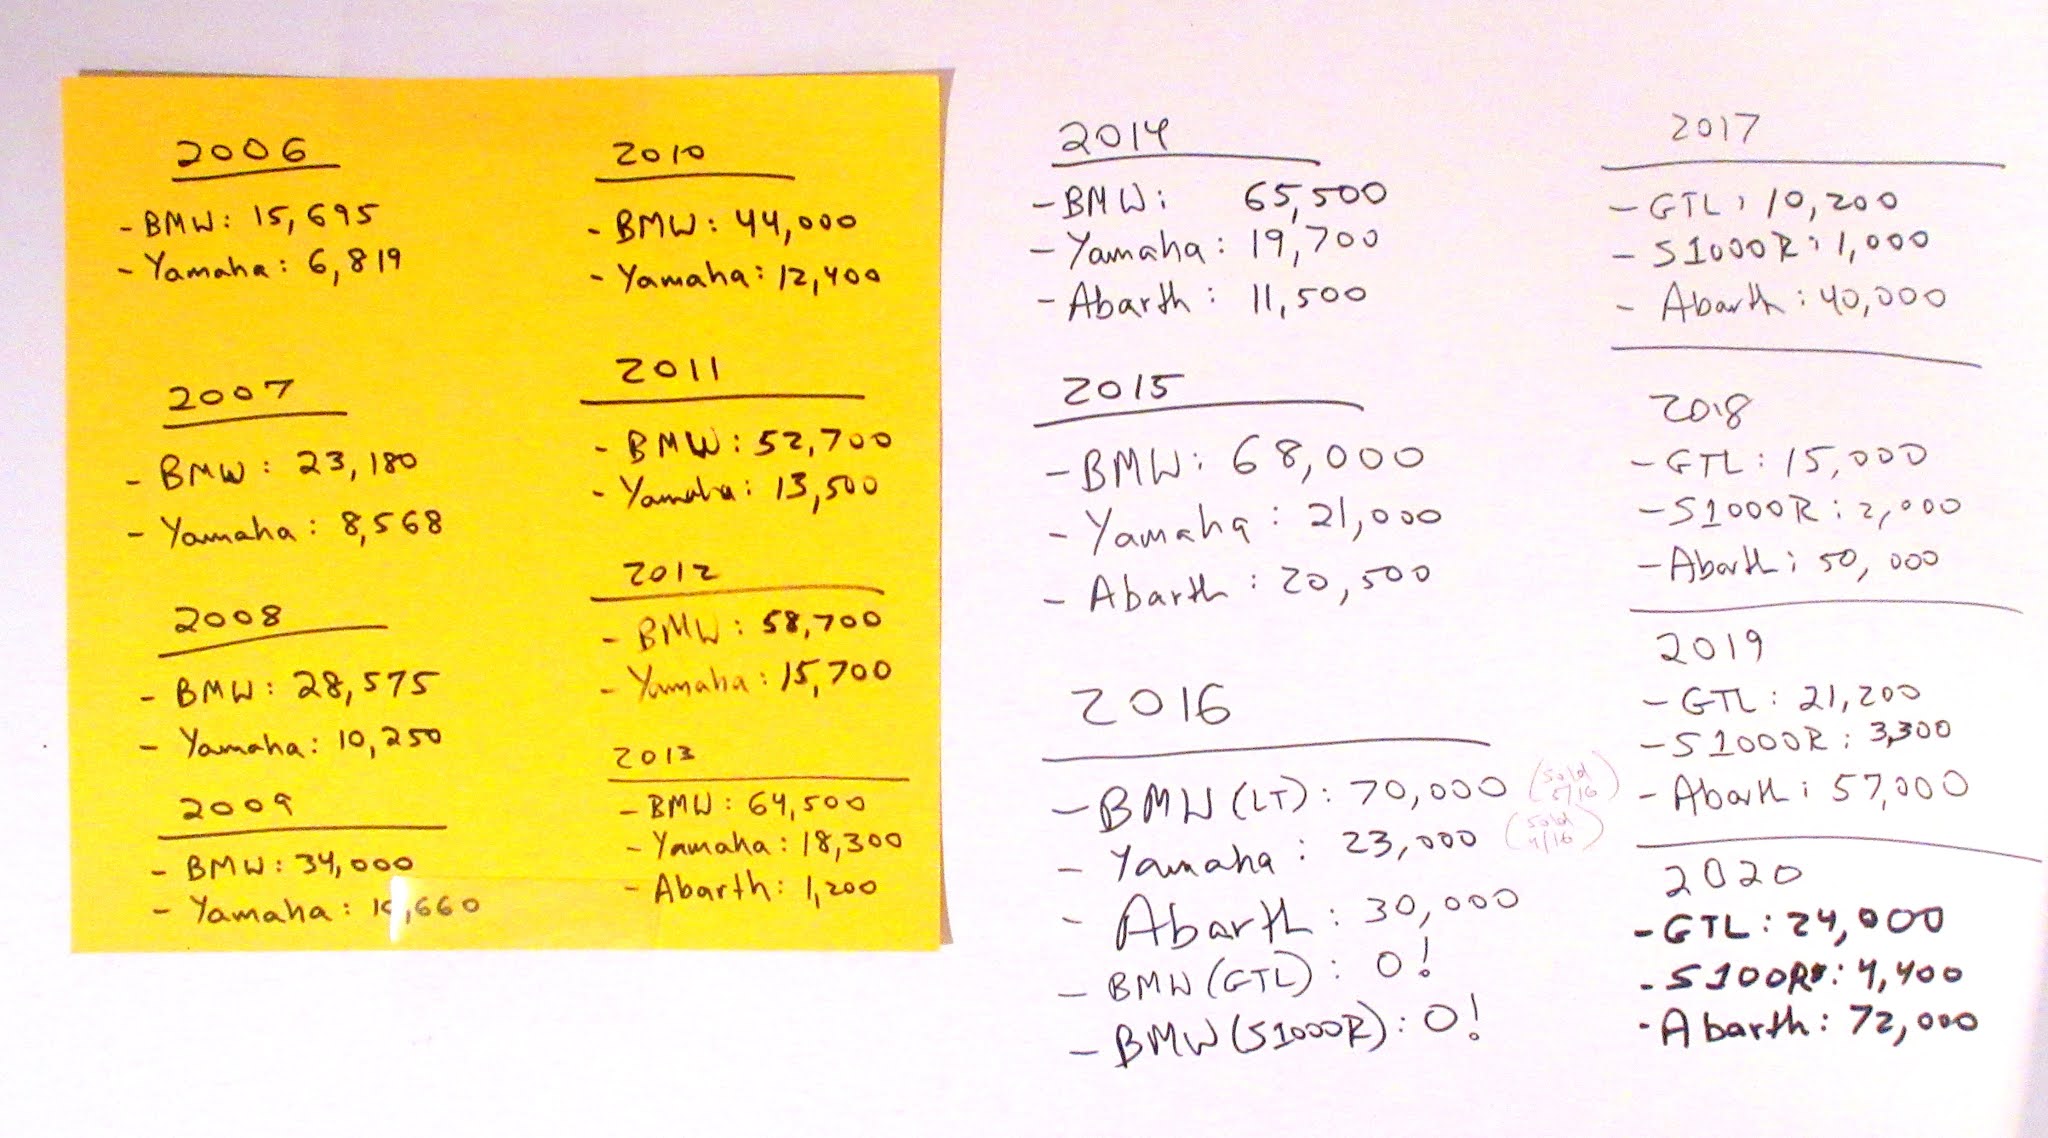 2006
- BMW: 15,695
- Yamaha: 6,819
2007
- BMW: 23,180
- Yamaha: 8,568
2008
- BMW: 28,575
- Yamaha: 10,250
2009
- BMW: 34,000
- Yamaha:
2010
- BMW: 44,000
- Yamaha: 12,400
2011
- BMW: 52,700
- Yamaha: 13,500
2012
- BMW: 58,700
- Yamaha: 15,700
2013
- BMW: 64,500
- Yamaha: 18,300
- Abarth: 1,200
2014
- BMW: 65,500
- Yamaha: 19,700
- Abarth: 11,500
2015
- BMW: 68,000
- Yamaha: 21,000
- Abarth: 20,500
2016
- BMW (LT): 70,000 (sold 5/16)
- Yamaha: 23,000 (sold 4/16)
- Abarth: 30,000
- BMW (GTL): 0!
- BMW (S1000R): 0!
2017
- GTL: 10,200
- S1000R: 1,000
- Abarth: 40,000
2018
- GTL: 15,000
- S1000R: 2,000
- Abarth: 50,000
2019
- GTL: 21,200
- S1000R: 3,300
- Abarth: 57,000
2020
- GTL: 24,000
- S100R: 4,400
- Abarth: 72,000